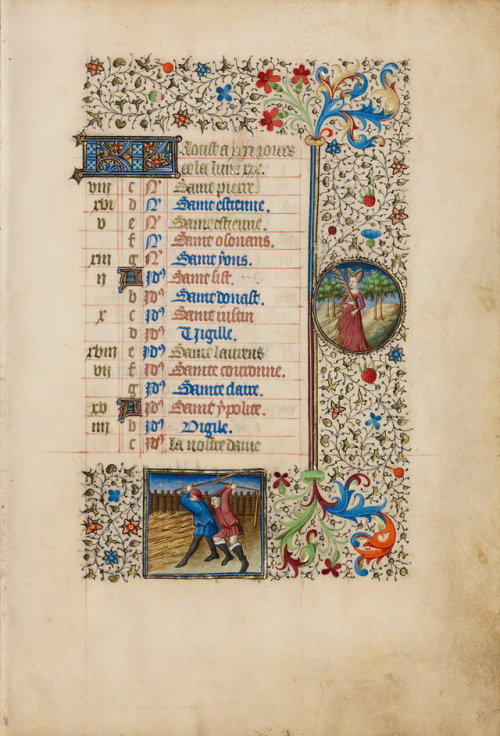 Aoust a xxxi jours
et la lune xxx.
viii c N Saint pierre
xvi d N Saint estienne.
v e N Saint estienne.
f N Saint osouans.
xiii g N Saint yons.
ii A Id Saint sist.
b Id Saint donast.
x c Id Saint iustin
d Id Vigille.
xviii e Id Saint laurens
vii f Id Sainte couronne.
g Id Sainte claire.
xv A Id Saint ypolite.
iiii b Id Vigile.
c Id la nostre dame